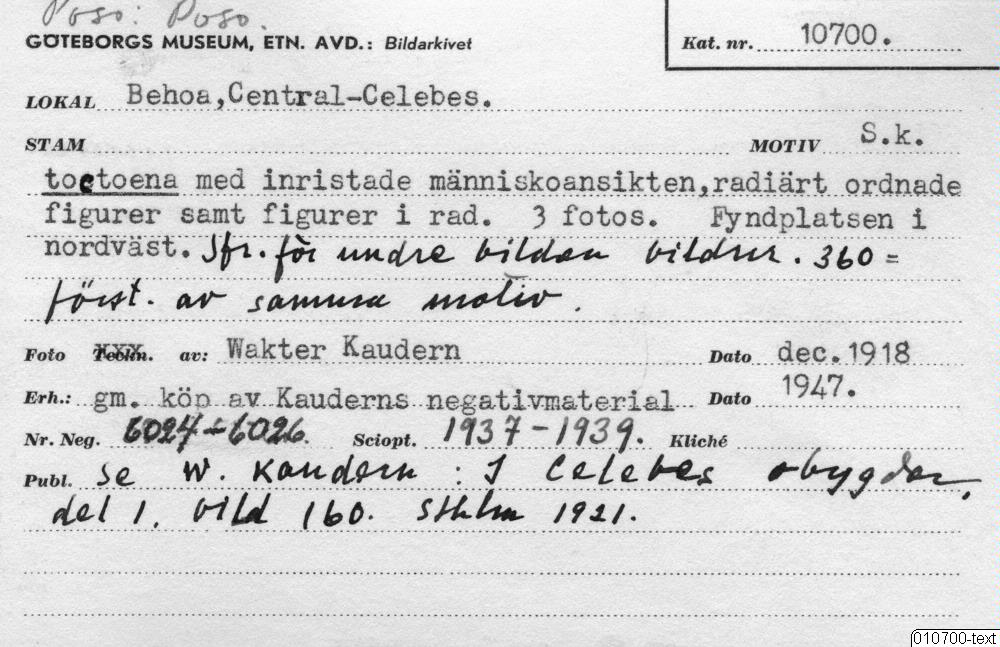 Poso: Poso.
GÖTEBORGS MUSEUM, ETN. AVD.: Bildarkivet
Kat. nr. 10700.
LOKAL Behoa,Central-Celebes.
STAM MOTIV S.k.
toetoena med inristade människoansikten,radiärt ordnade
figurer samt figurer i rad. 3 fotos. Fyndplatsen i
nordväst. Jfr. för undre bilden bildnr. 360 =
först. av samma motiv.
Foto Teckn. av: Wakter Kaudern Dato dec.1918
Erh.: gm. köp av Kauderns negativmaterial Dato 1947.
Nr. Neg. 6024-6026. Sciopt. 1937-1939. Kliché
Publ. se W. Kaudern : I Celebes obygder,
del 1, bild 160. Sthlm 1921.
010700-text